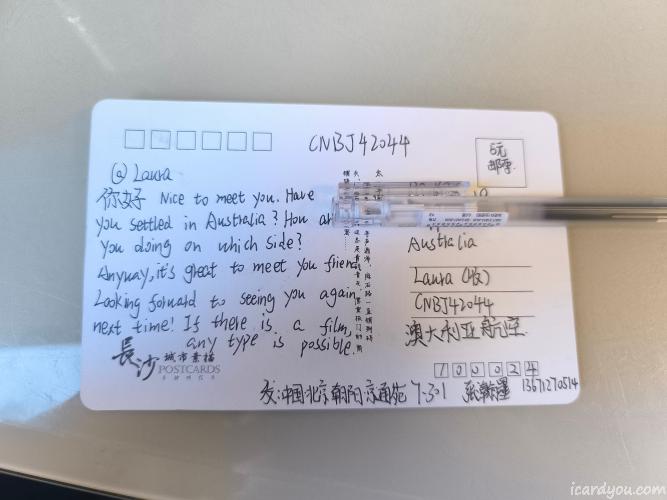 CNBJ42044
5元
邮票
@ Laura
你好 Nice to meet you. Have
you settled in Australia? How
you doing on which side?
Anyway, it's great to meet you friend
Looking forward to seeing you again
next time! If there is a film,
any type is possible.
Australia
Laura (收)
CNBJ42044
澳大利亚 航空
長沙 城市素描
POSTCARDS
100024
发:中国北京朝阳京通苑 7-301 13671270514
icardyou.com